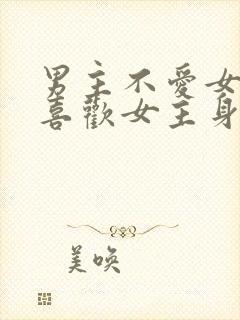 男主不愛女
喜歡女主身
美喚